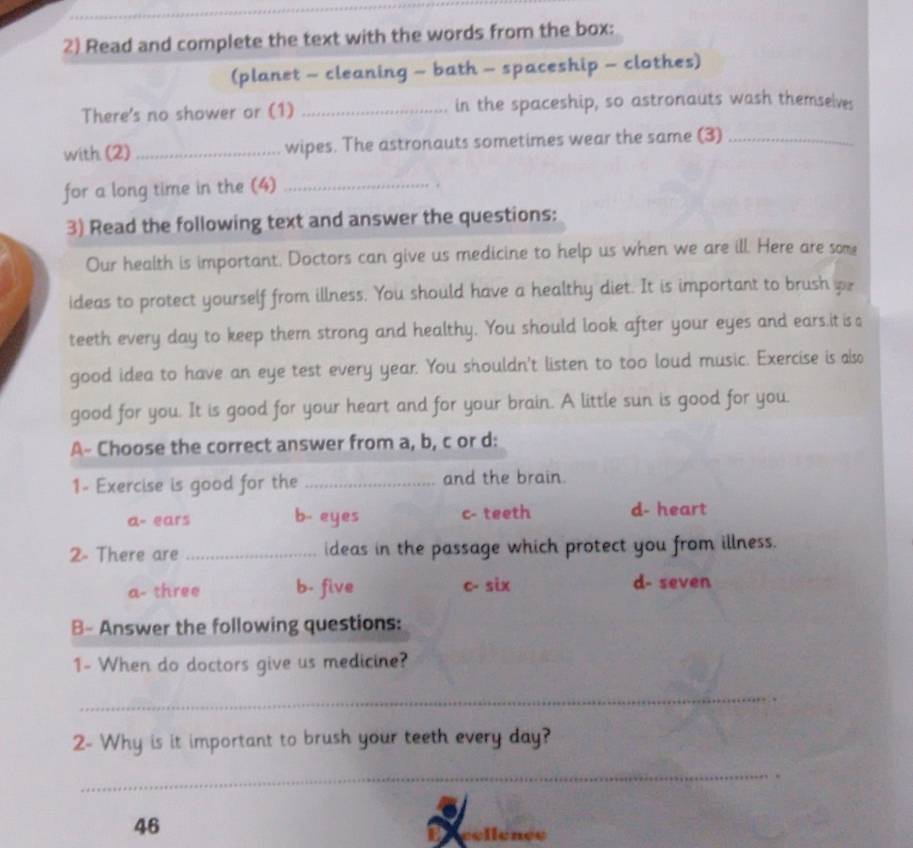 2) Read and complete the text with the words from the box:
(planet - cleaning - bath - spaceship - clothes)
There's no shower or (1) ........................ in the spaceship, so astronauts wash themselves
with (2) ........................ wipes. The astronauts sometimes wear the same (3) ........................
for a long time in the (4) ........................ .
3) Read the following text and answer the questions:
Our health is important. Doctors can give us medicine to help us when we are ill. Here are some
ideas to protect yourself from illness. You should have a healthy diet. It is important to brush your
teeth every day to keep them strong and healthy. You should look after your eyes and ears.it is a
good idea to have an eye test every year. You shouldn't listen to too loud music. Exercise is also
good for you. It is good for your heart and for your brain. A little sun is good for you.
A- Choose the correct answer from a, b, c or d:
1- Exercise is good for the ........................ and the brain.
a- ears b- eyes c- teeth d- heart
2- There are ........................ ideas in the passage which protect you from illness.
a- three b- five c- six d- seven
B- Answer the following questions:
1- When do doctors give us medicine?
........................ .
2- Why is it important to brush your teeth every day?
........................ .
46
Excellence